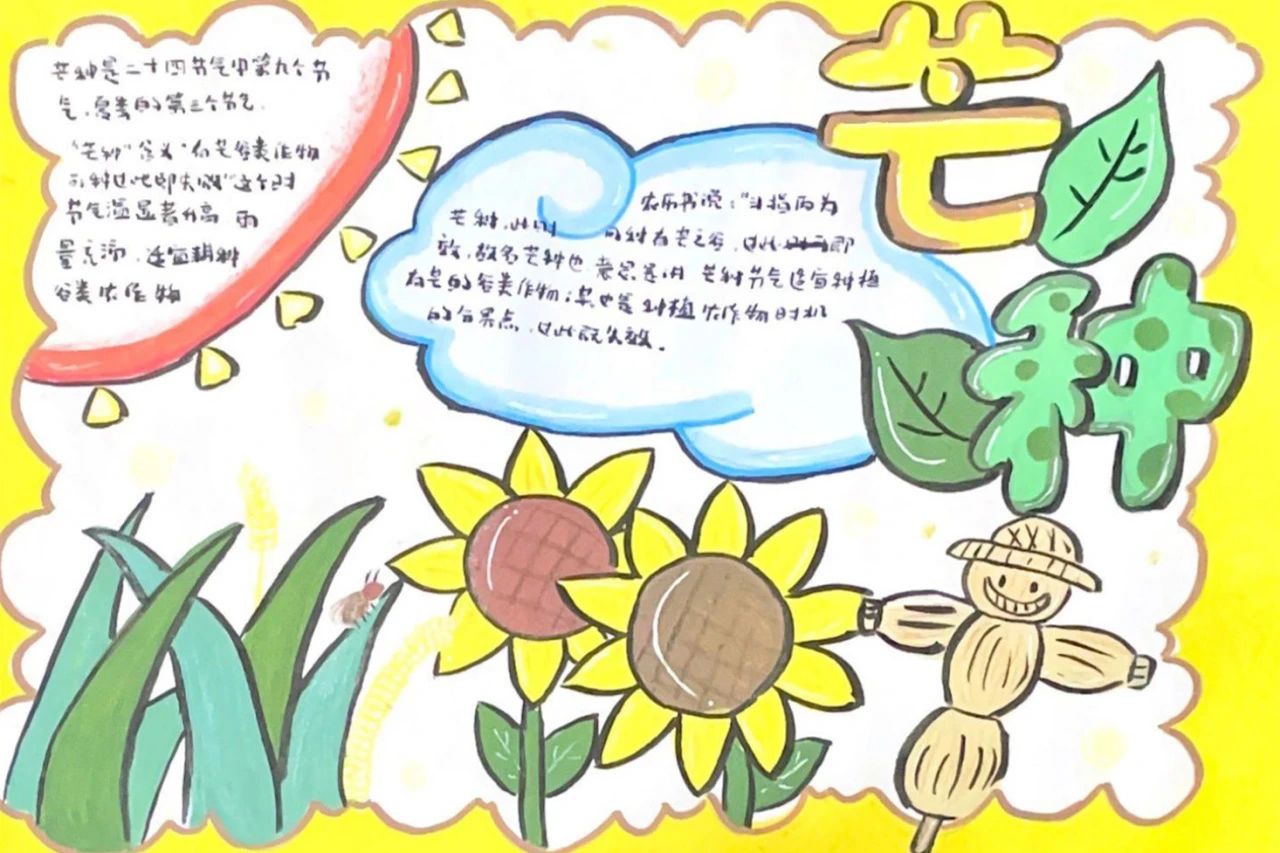 芒种
芒种是二十四节气中第九个节
气，夏季的第三个节气.
"芒种"含义"有芒谷类作物
可种过此即失效"这个时
节气温显著升高 雨
量充沛，适宜耕种
谷类农作物
农历书说："斗指丙为
芒种，此时 可种有芒之谷，过此即
效，故名芒种也，意思是讲 芒种节气适宜种植
有芒的谷类作物；其也是 种植 农作物时机
的分界点，过此既失效。